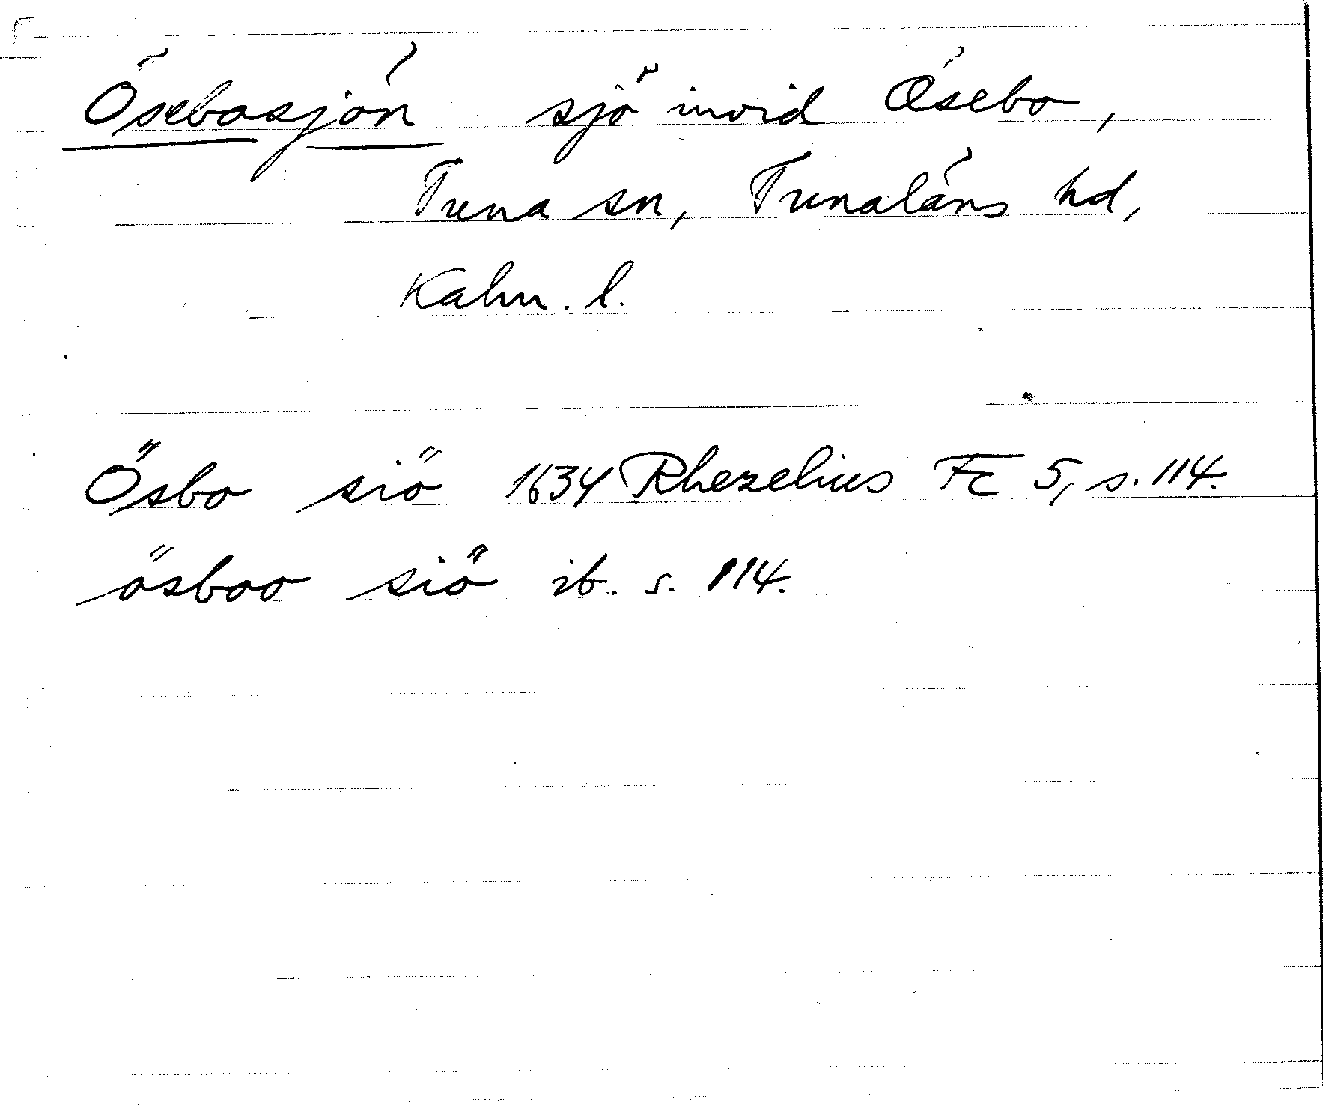 Ösebosjön sjö invid Ösebo,
Tuna sn, Tunaläns hd,
Kalm. l.
Ösbo siö 1634 Rhezelius Fc 5, s. 114.
ösboo siö ib. s. 114.